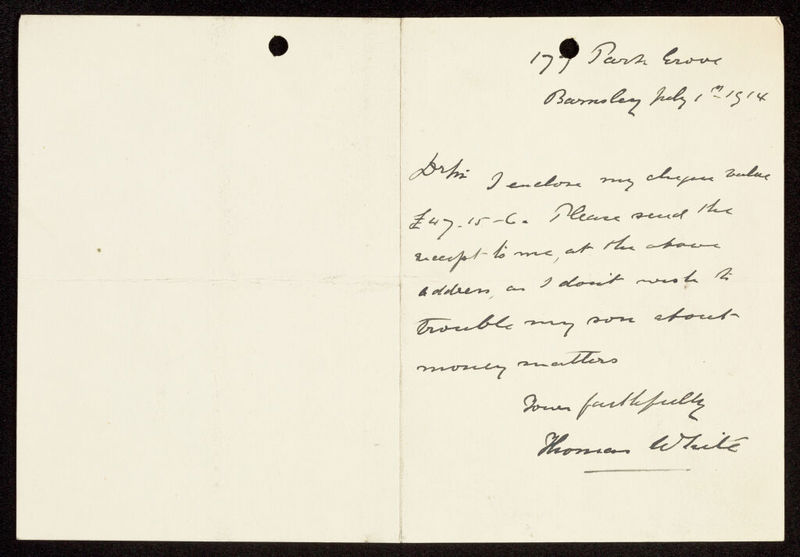 177 Park Grove
Barnsley July 1st 1914
Dr Sir
I enclose my cheque value
£47-15-6. Please send the
receipt to me, at the above
address, as I don't wish to
trouble my son about
money matters
Yours faithfully
Thomas White